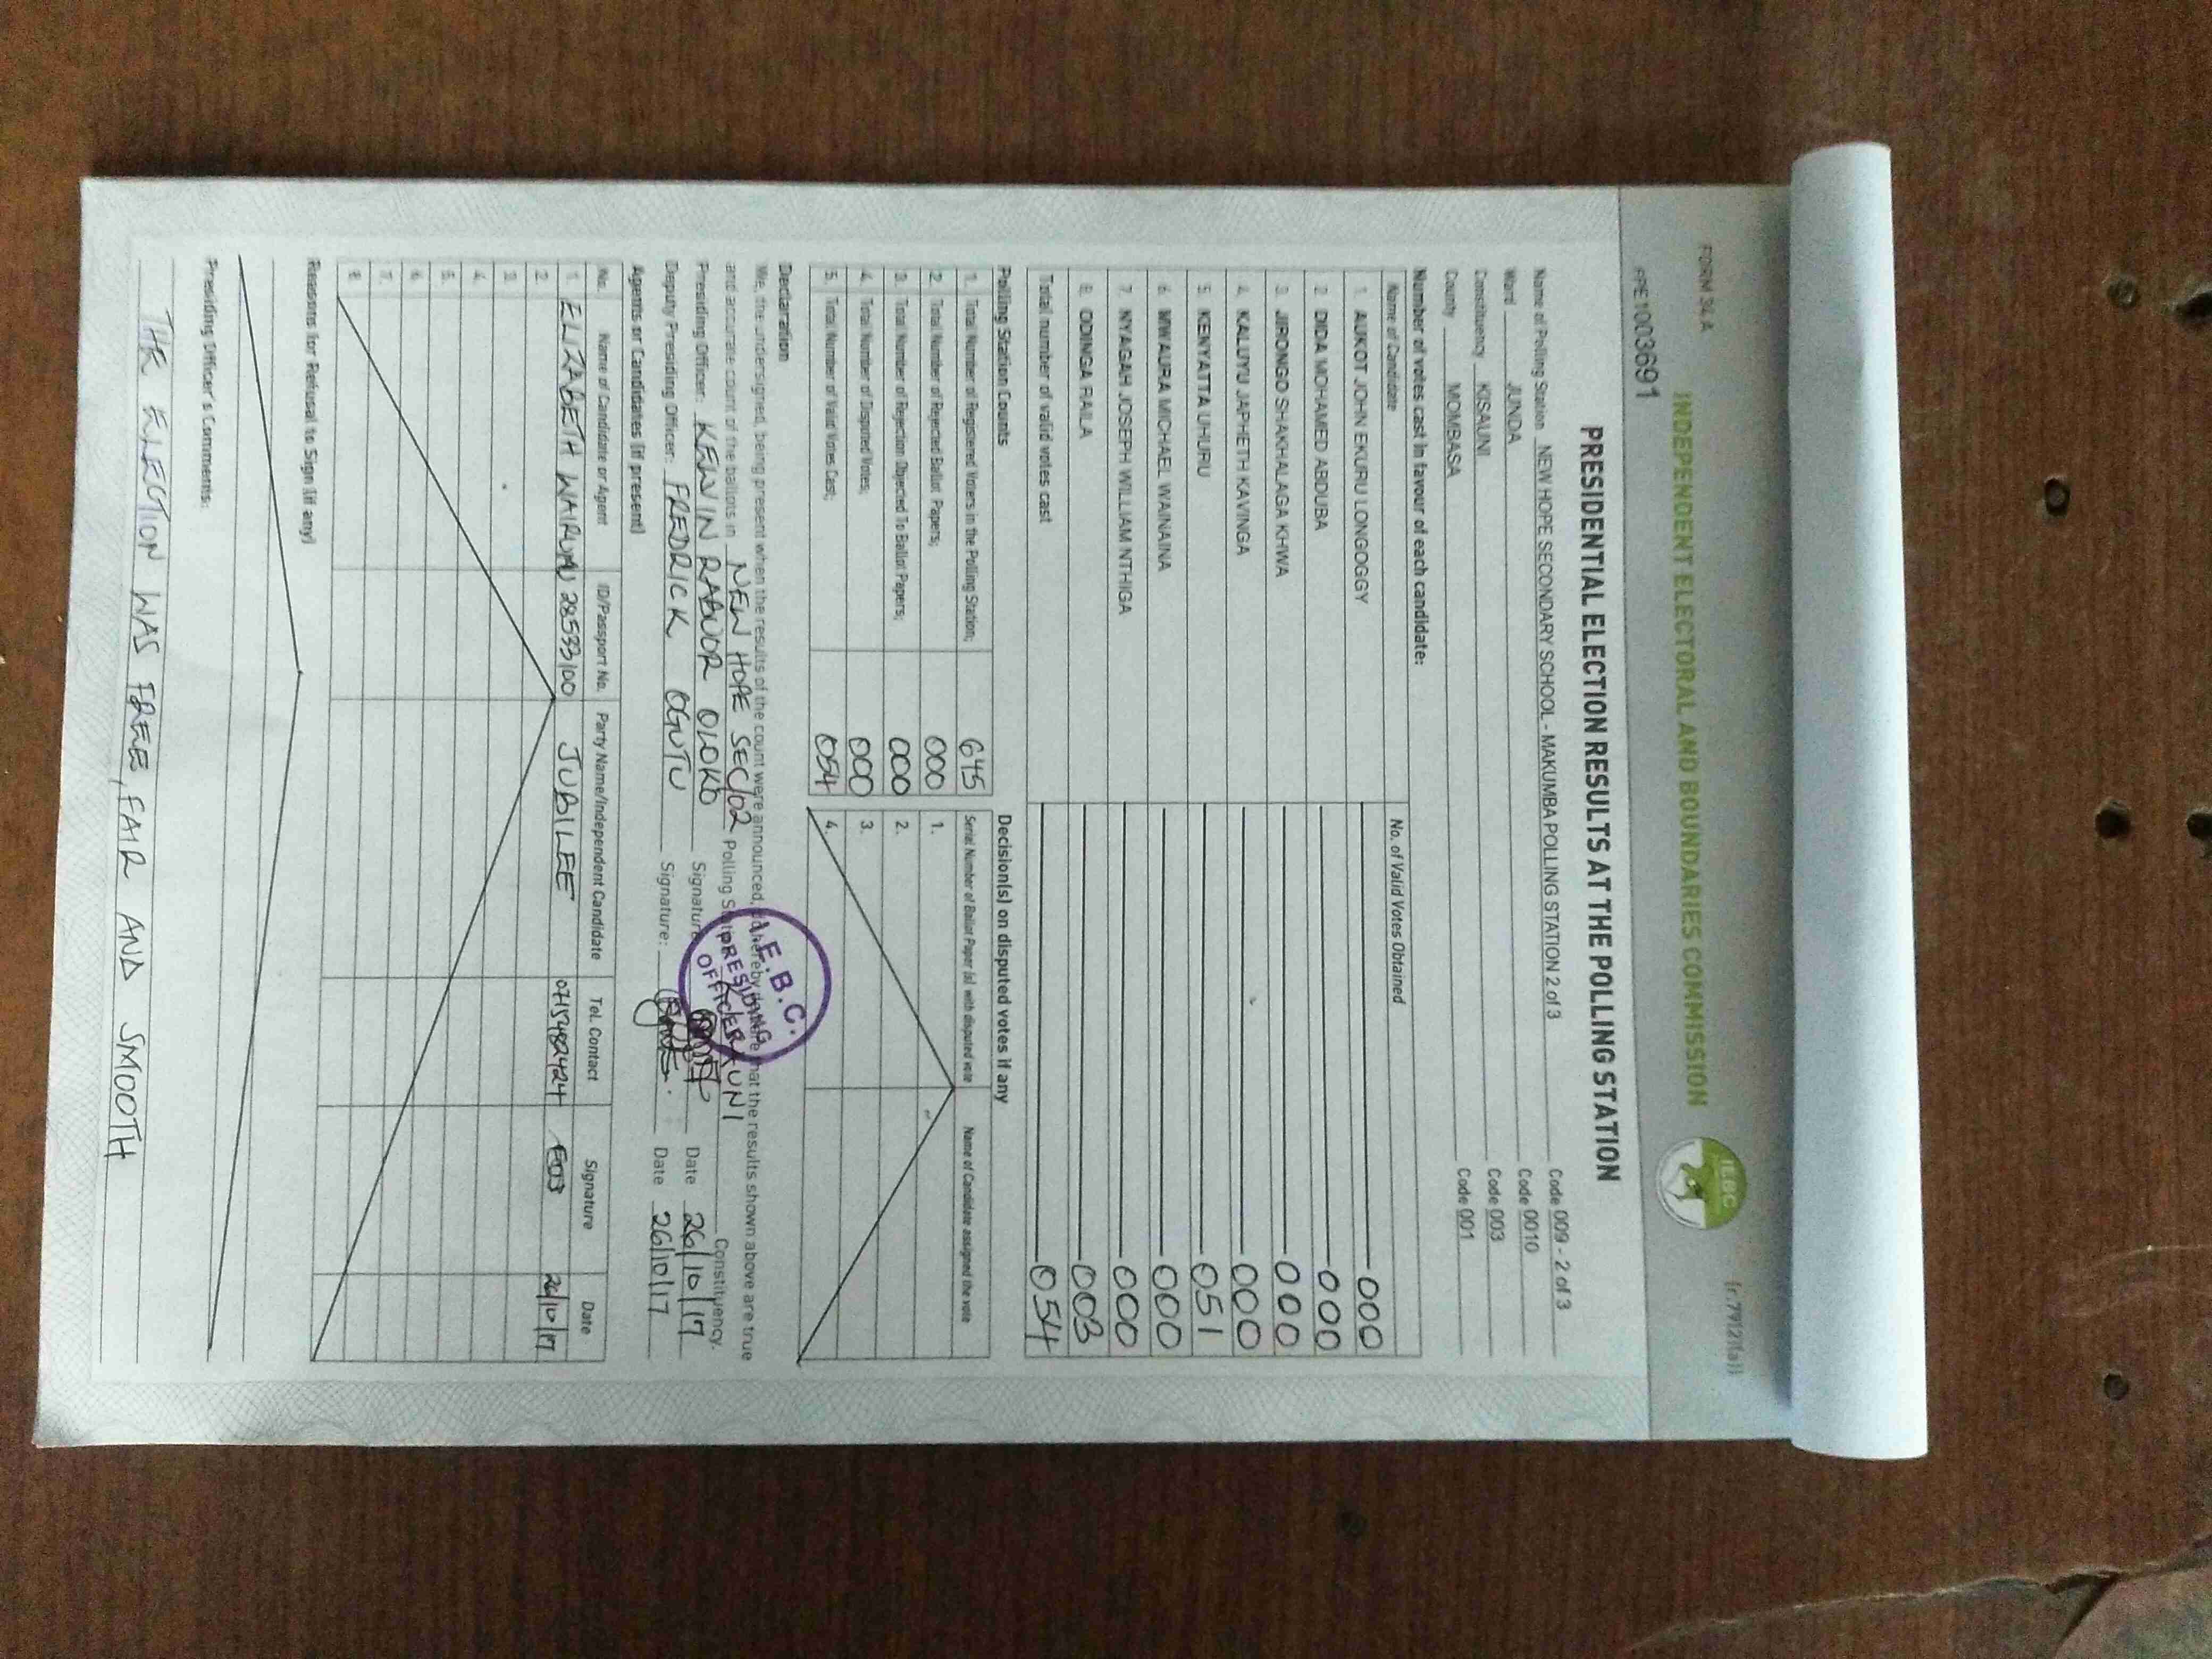 FORM 34 A
(r.79(2)(a))
INDEPENDENT ELECTORAL AND BOUNDARIES COMMISSION
I.E.B.C
PPE1003691
PRESIDENTIAL ELECTION RESULTS AT THE POLLING STATION
Name of Polling Station NEW HOPE SECONDARY SCHOOL - MAKUMBA POLLING STATION 2 of 3 Code 009 - 2 of 3
Ward JUNDA Code 0010
Constituency KISAUNI Code 003
County MOMBASA Code 001
Number of votes cast in favour of each candidate:
Name of Candidate No. of Valid Votes Obtained
1. AUKOT JOHN EKURU LONGOGGY 000
2. DIDA MOHAMED ABDUBA 000
3. JIRONGO SHAKHALAGA KHWA 000
4. KALUYU JAPHETH KAVINGA 000
5. KENYATTA UHURU 051
6. MWAURA MICHAEL WAINAINA 000
7. NYAGAH JOSEPH WILLIAM NTHIGA 000
8. ODINGA RAILA 003
Total number of valid votes cast 054
Polling Station Counts
1. Total Number of Registered Voters in the Polling Station; 645
2. Total Number of Rejected Ballot Papers; 000
3. Total Number of Rejection Objected To Ballot Papers; 000
4. Total Number of Disputed Votes; 000
5. Total Number of Valid Votes Cast; 054
Decision(s) on disputed votes if any
Serial Number of Ballot Paper (s) with disputed vote Name of Candidate assigned the vote
1.
2.
3.
4.
Declaration
We, the undersigned, being present when the results of the count were announced, do hereby declare that the results shown above are true
and accurate count of the ballots in NEW HOPE SEC/02 Polling Station Constituency.
Presiding Officer: KEVIN RABUOR OLOKO Signature: Date 26/10/17
Deputy Presiding Officer: FREDRICK OGUTU Signature: Date 26/10/17
I.E.B.C.
PRESIDING
OFFICER
Agents or Candidates (if present)
No. Name of Candidate or Agent ID/Passport No. Party Name/Independent Candidate Tel. Contact Signature Date
1. ELIZABETH WAIRIMU 28533100 JUBILEE 0715482424 26/10/17
2.
3.
4.
5.
6.
7.
8.
Reasons for Refusal to Sign (if any)
Presiding Officer's Comments:
THE ELECTION WAS FREE, FAIR AND SMOOTH